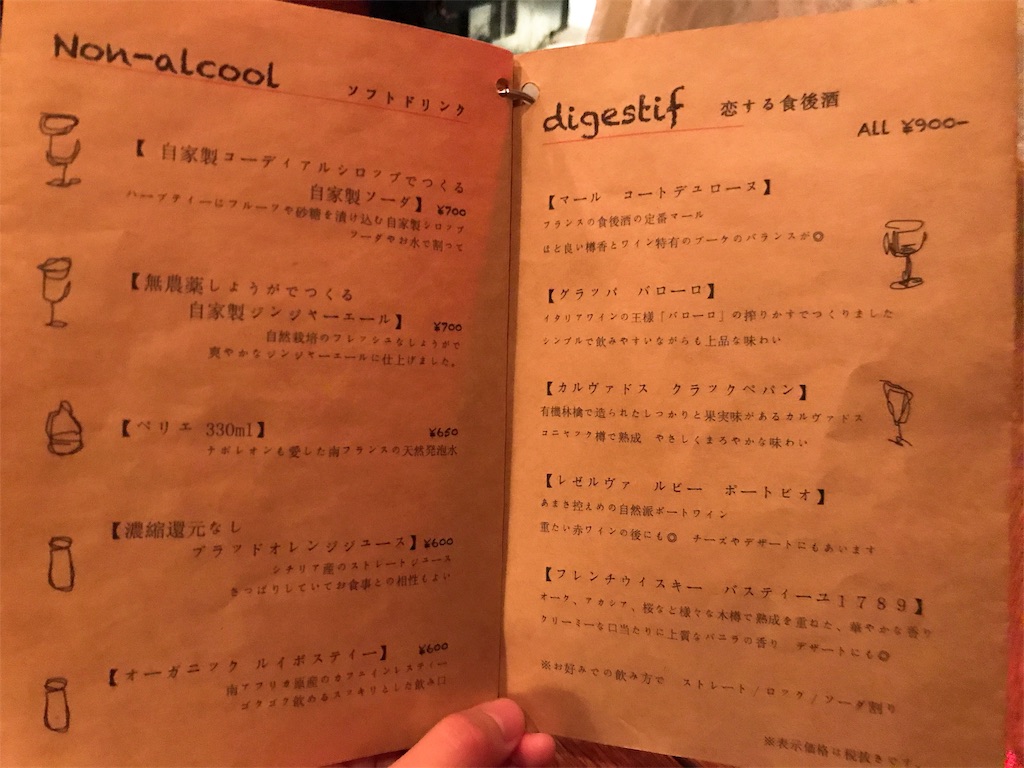 Non-alcool
ソフトドリンク
【 自家製コーディアルシロップでつくる
自家製ソーダ】 ¥700
ハーブティーにフルーツや砂糖を漬け込む自家製シロップ
ソーダやお水で割って
【無農薬しょうがでつくる
自家製ジンジャーエール】 ¥700
自然栽培のフレッシュなしょうがで
爽やかなジンジャーエールに仕上げました。
【ペリエ 330ml】 ¥650
ナポレオンも愛した南フランスの天然発泡水
【濃縮還元なし
ブラッドオレンジジュース】 ¥600
シチリア産のストレートジュース
さっぱりしていてお食事との相性もよい
【オーガニック ルイボスティー】 ¥600
南アフリカ原産のカフェインレスティー
ゴクゴク飲めるスッキリとした飲み口
digestif 恋する食後酒
ALL ¥900-
【マール コートデュローヌ】
フランスの食後酒の定番マール
ほど良い樽香とワイン特有のブーケのバランスが◎
【グラッパ バローロ】
イタリアワインの王様「バローロ」の搾りかすでつくりました
シンプルで飲みやすいながらも上品な味わい
【カルヴァドス クラックペパン】
有機林檎で造られたしっかりと果実味があるカルヴァドス
コニャック樽で熟成 やさしくまろやかな味わい
【レゼルヴァ ルビー ポートビオ】
あまさ控えめの自然派ポートワイン
重たい赤ワインの後にも◎ チーズやデザートにもあいます
【フレンチウイスキー バスティーユ1789】
オーク、アカシア、桜など様々な木樽で熟成を重ねた、華やかな香り
クリーミーな口当たりに上質なバニラの香り デザートにも◎
※お好みでの飲み方で ストレート/ロック/ソーダ割り
※表示価格は税抜きです